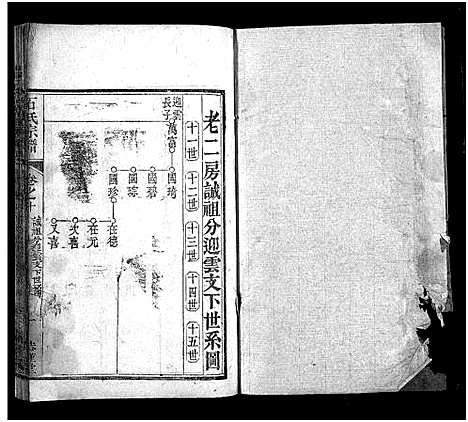 老二房誠祖分迎雲文下世系圖
十一世
十二世
十三世
十四世
十五世
迎雲長子
萬富
國琦
國碧
國琼
國珍
在德
在元
次喜
又喜
石氏宗譜
卷之十
誠祖分迎雲文下世系